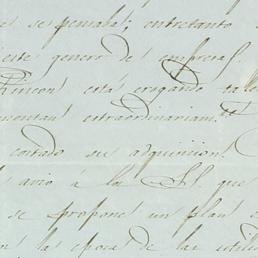 se pensaba; entretanto
este genero de empresas
Rincon está erogando
aumentan extraordinariamte
costado su adquisicion.
avió á la Sl. que
se propone un plan
la epoca de las utili